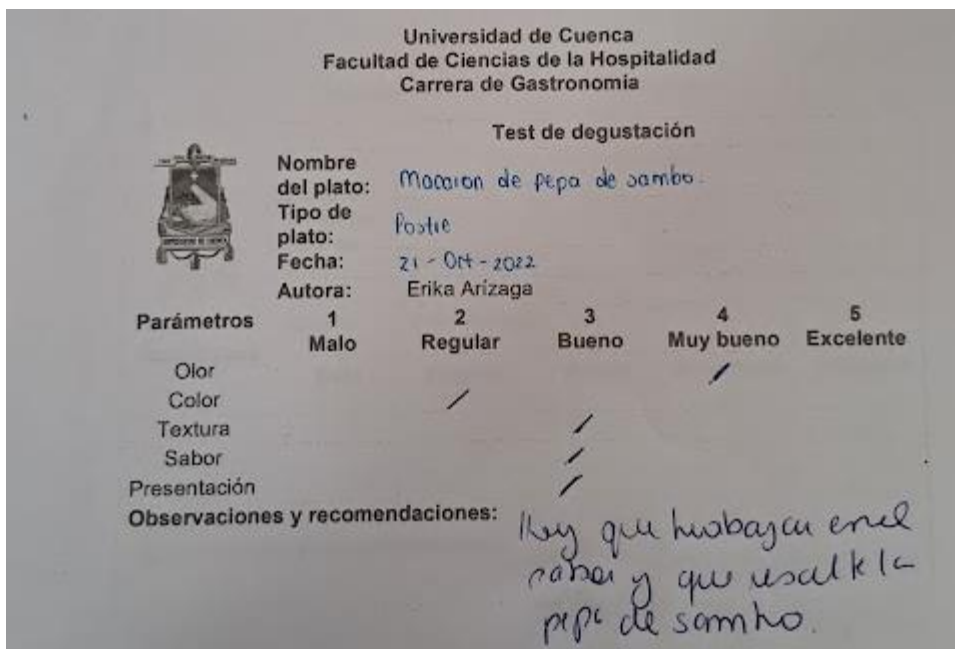 Universidad de Cuenca
Facultad de Ciencias de la Hospitalidad
Carrera de Gastronomia
Test de degustación
Nombre del plato: Macaron de pepa de sambo.
Tipo de plato: Postre
Fecha: 21 - Oct - 2022
Autora: Erika Arízaga
Parámetros 1 2 3 4 5
Malo Regular Bueno Muy bueno Excelente
Olor /
Color /
Textura /
Sabor /
Presentación /
Observaciones y recomendaciones: Hay que trabajar en el
sabor y que resalte la
pepa de sambo.